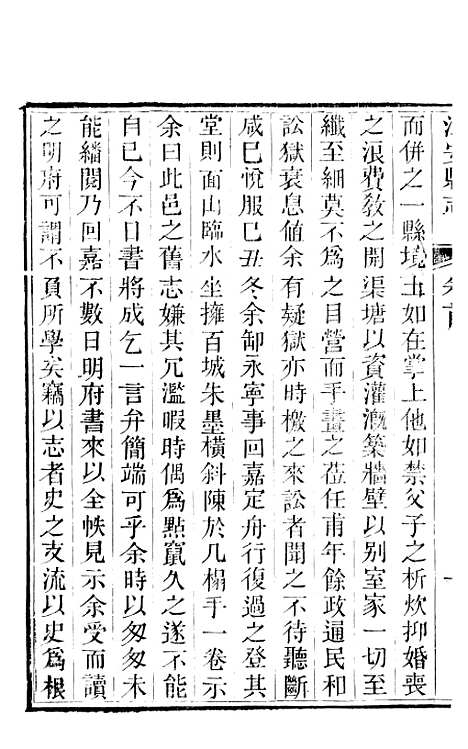 而併之一縣境土如在掌上他如禁父子之析炊抑婚喪
之浪費敎之開渠塘以資灌漑築牆壁以別室家一切至
纖至細莫不爲之目營而手畫之莅任甫年餘政通民和
訟獄衰息値余有疑獄亦時檄之來訟者聞之不待聽斷
咸已悅服已丑冬余卸永寧事回嘉定舟行復過之登其
堂則面山臨水坐擁百城朱墨橫斜陳於几榻手一卷示
余曰此邑之舊志嫌其冗濫暇時偶爲點竄久之遂不能
自已今不日書將成乞一言弁簡端可乎余時以匆匆未
能繙閱乃回嘉不數日明府書來以全帙見示余受而讀
之明府可謂不負所學矣竊以志者史之支流以史爲根